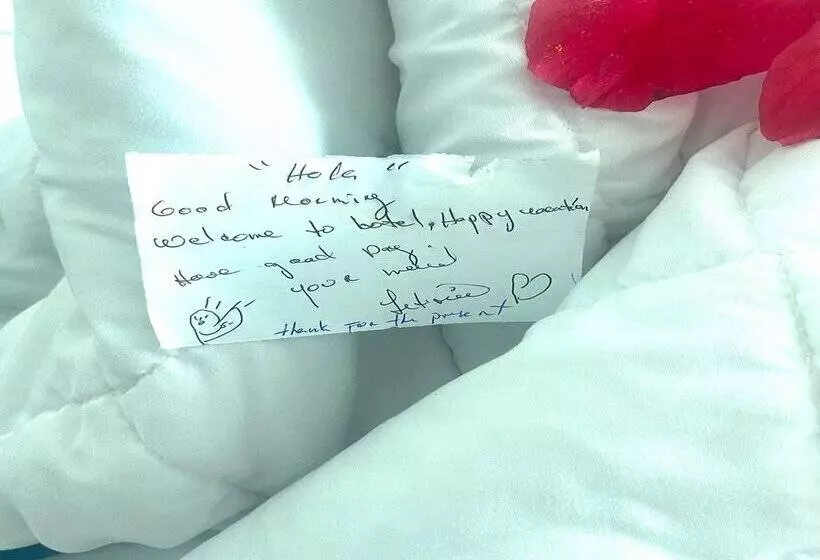 " Hola "
Good morning
Welcome to hotel, Happy vacation
Have good Day
your
thank For the present